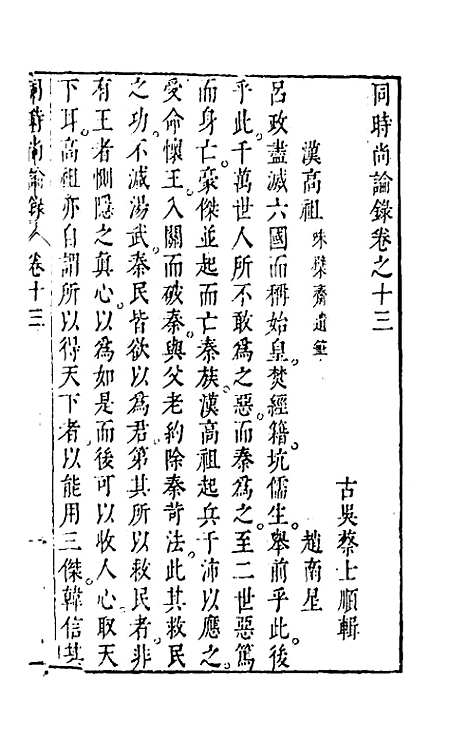 同時尚論錄卷之十三
古吳蔡士順輯
漢高祖 味檗齋遺筆 趙南星
呂政盡滅六國而稱始皇焚經籍坑儒生舉前乎此後
乎此千萬世人所不敢為之惡而秦為之至二世惡篤
而身亡豪傑並起而亡秦族漢高祖起兵于沛以應之
受命懷王入關而破秦與父老約除秦苛法此其救民
之功不減湯武秦民皆欲以為君第其所以救民者非
有王者惻隱之真心以為如是而後可以收人心取天
下耳高祖亦自謂所以得天下者以能用三傑韓信其
同時尚論錄 卷十三 一